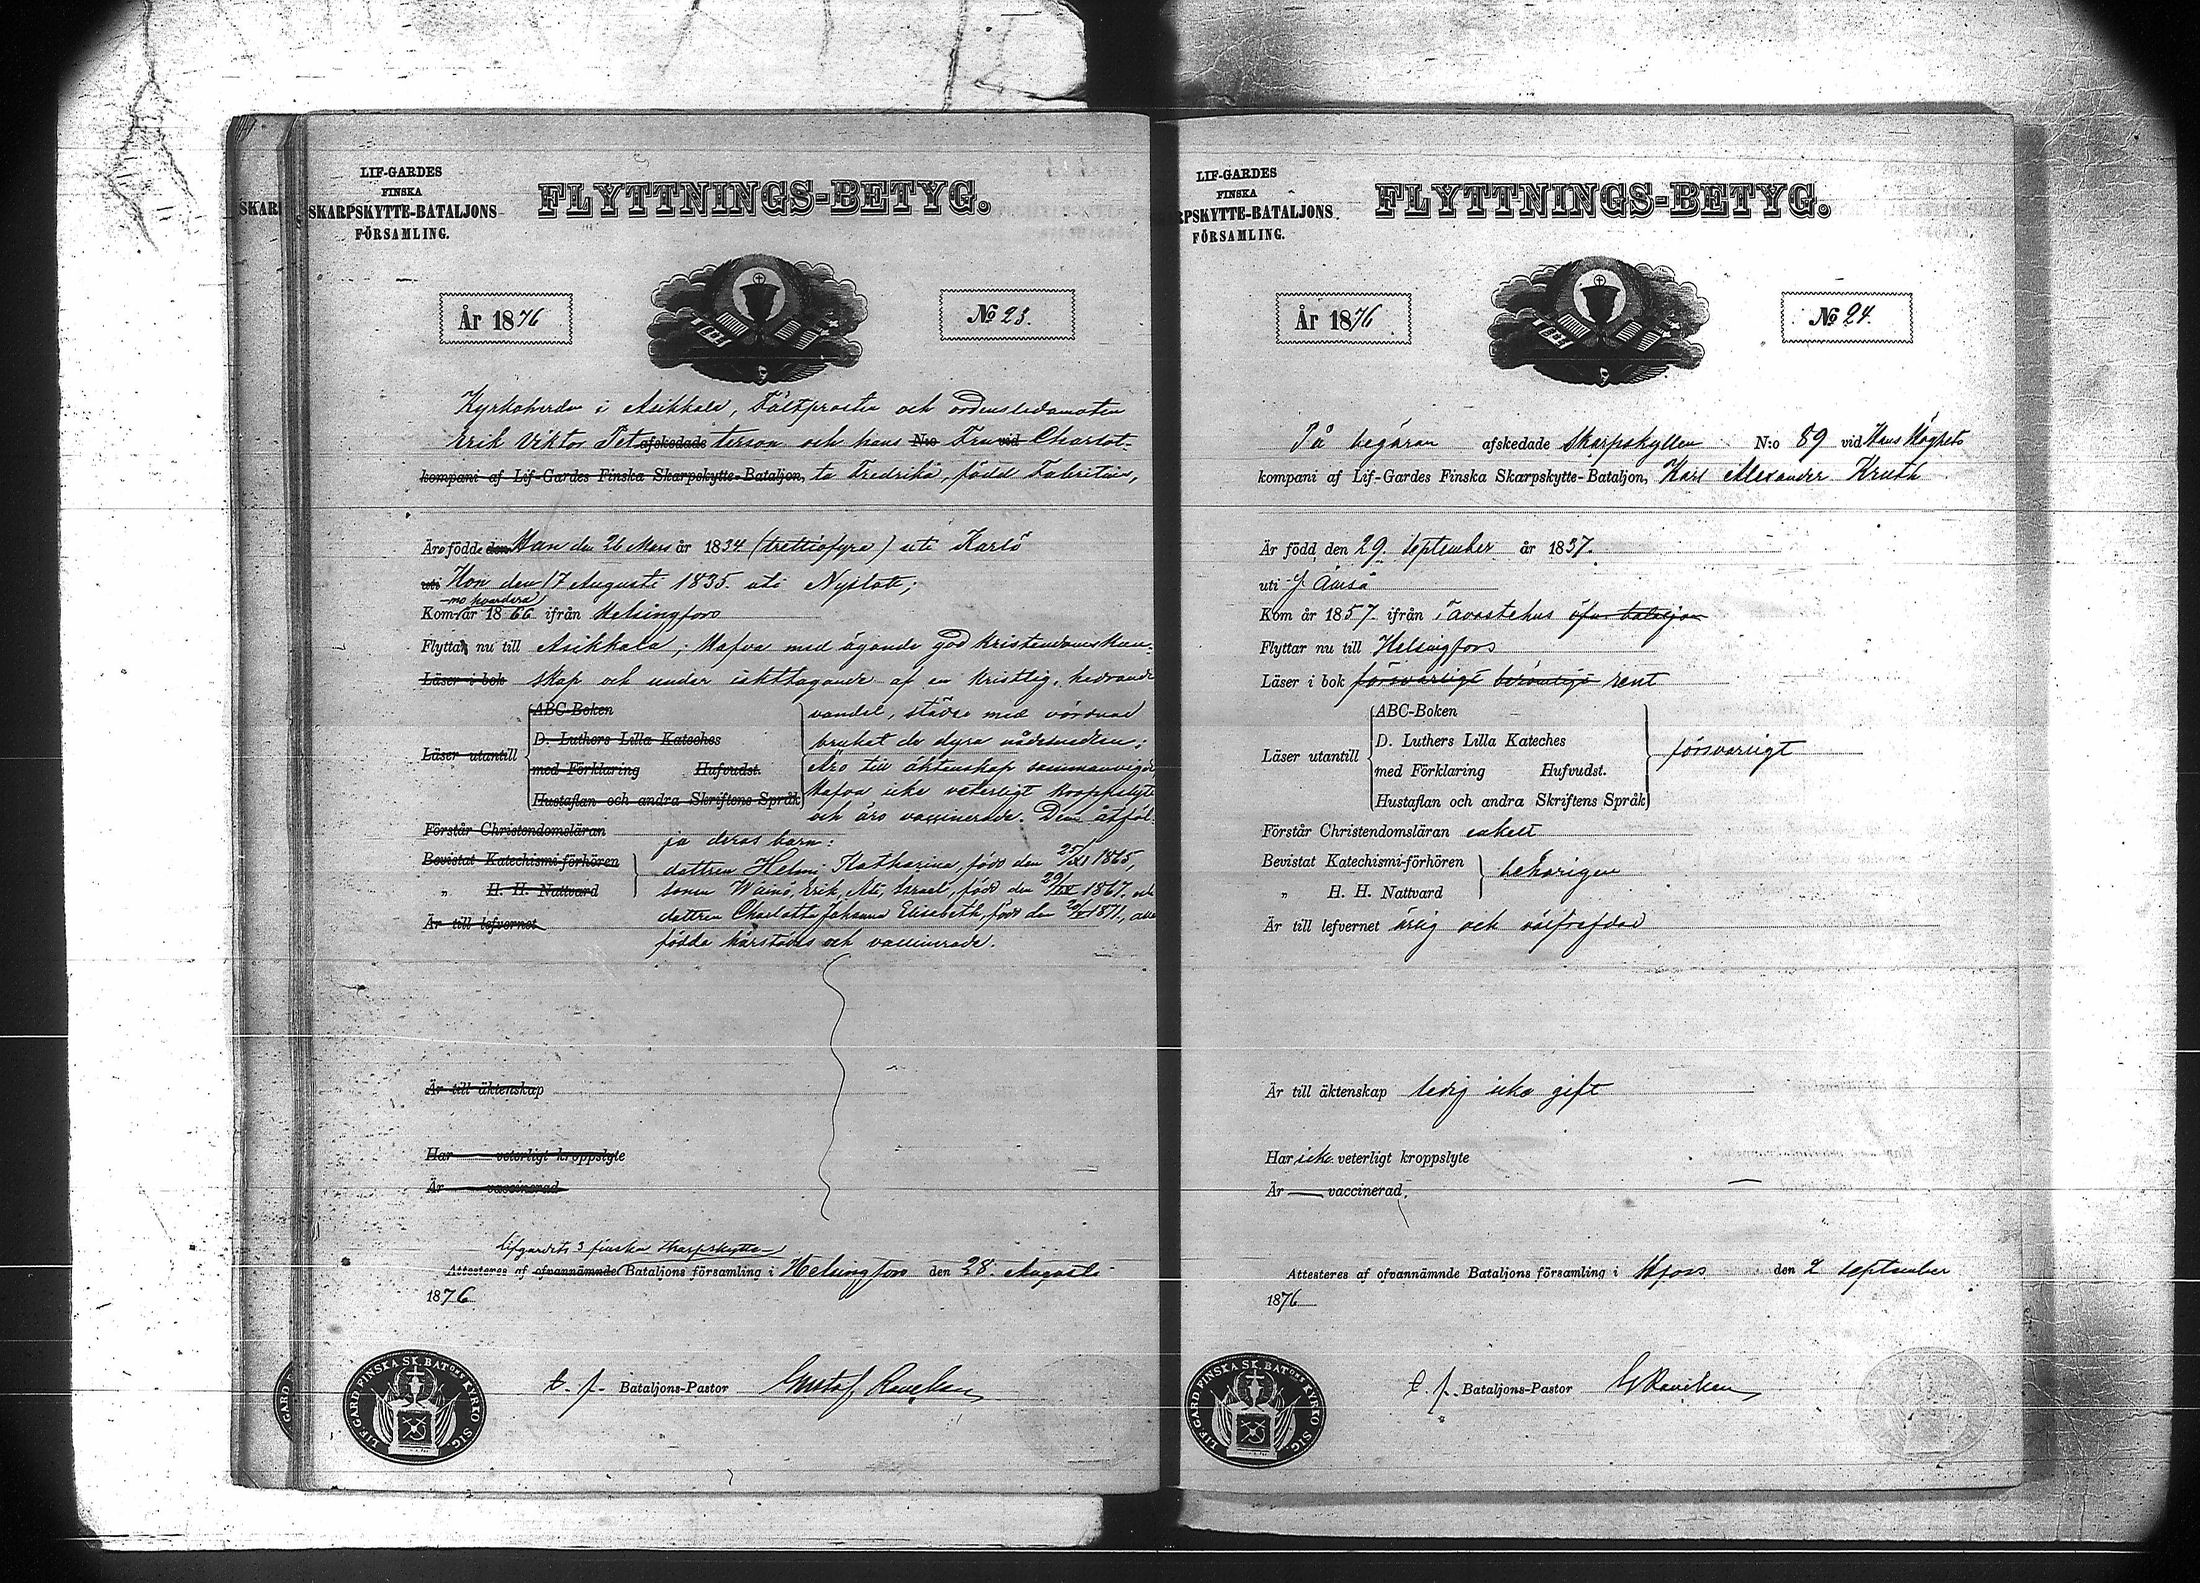 SKAR
LIF-GARDES
FINSKA
SKARPSKYTTE-BATALJONS
FÖRSAMLING.
FLYTTNINGS-BETYG.
År 1876
№ 23.
Kyrkoherden i Asikkala, Fältprosten och ordensledamoten
Erik Viktor Pet afskedade terson och hans N:o Fru vid Charlot-
kompani af Lif-Gardes Finska Skarpskytte-Bataljon, ta Fredrika, född Fabritius,
Äro födde den Han den 26 Mars år 1834 (trettiofyra) uti Karlö
uti Hon den 17 Augusti 1835 uti Nyslott;
-mo hvardera
Kom år 1866 ifrån Helsingfors
Flytta nu till Asikkala; Hafva med ägande god kristendomskun-
Läser i bok skap och under iakttagande af en kristlig, hedrande
ABC-Boken vandel, städse med vördnad
D. Luthers Lilla Kateches brukat de dyra nådemedlen;
Läser utantill
med Förklaring Hufvudst. Äro till äktenskap sammanvigde
Hustaflan och andra Skriftens Språk Hafva icke veterligt kroppslyte
och äro vaccinerade. Dem åtföl-
Förstår Christendomsläran ja deras barn:
Bevistat Katechismi-förhören dottren Helmi Katharina, född den 25/XI 1865,
„ H. H. Nattvard sonen Wäinö, Erik, Ati, Israel, född den 29/IX 1867, och
Är till lefvernet dottren Charlotta Johanna Elisabeth, född den 1871, alla
födda härstädes och vaccinerade.
Är till äktenskap
Har veterligt kroppslyte
Är vaccinerad
Lifgardets 3 finska Skarpskytte-
Attesteres af ofvannämnde Bataljons församling i Helsingfors den 28. Augusti
1876
t. f. Bataljons-Pastor Gustaf
LIF-GARD FINSKA SK. BATONS KYRKO SIG.
LIF-GARDES
FINSKA
RPSKYTTE-BATALJONS
FÖRSAMLING.
FLYTTNINGS-BETYG.
År 1876
№ 24.
På begäran afskedade Skarpskytten N:o 89 vid Hans Höghets
kompani af Lif-Gardes Finska Skarpskytte-Bataljon, Karl Alexander Kruth
Är född den 29 September år 1837.
uti
Kom år 1857. ifrån Tavastehus öfvr bataljon
Flyttar nu till Helsingfors
Läser i bok försvarligt berömligt rent
ABC-Boken
D. Luthers Lilla Kateches
Läser utantill försvarligt
med Förklaring Hufvudst.
Hustaflan och andra Skriftens Språk
Förstår Christendomsläran enkelt
Bevistat Katechismi-förhören behörigen
„ H. H. Nattvard
Är till lefvernet ärlig och välfrejdad
Är till äktenskap ledig icke gift
Har icke veterligt kroppslyte
Är vaccinerad.
Attesteres af ofvannämnde Bataljons församling i Hfors den 2 september
1876
t. f. Bataljons-Pastor
LIF-GARD FINSKA SK. BATONS KYRKO SIG.